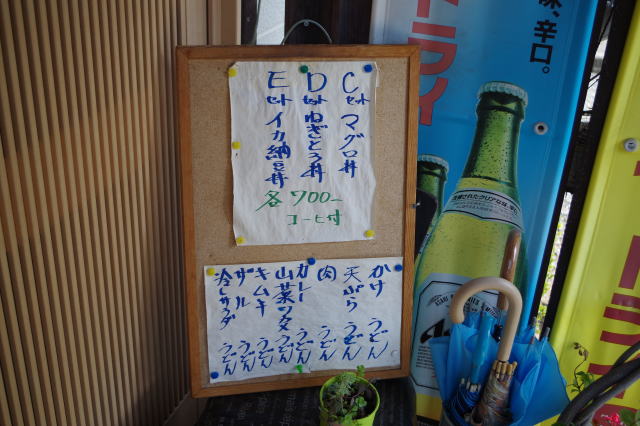 Cセット マグロ丼
Dセット ねぎとろ丼
Eセット イカ納豆丼
各700ー
コーヒ付
かけ うどん
天ぷら うどん
肉 うどん
カレー うどん
山菜ワカメ うどん
キムキ うどん
ザル うどん
冷しサラダ うどん
味、辛口。
ドライ
洗練されたクリアな味、辛口。
ドラ